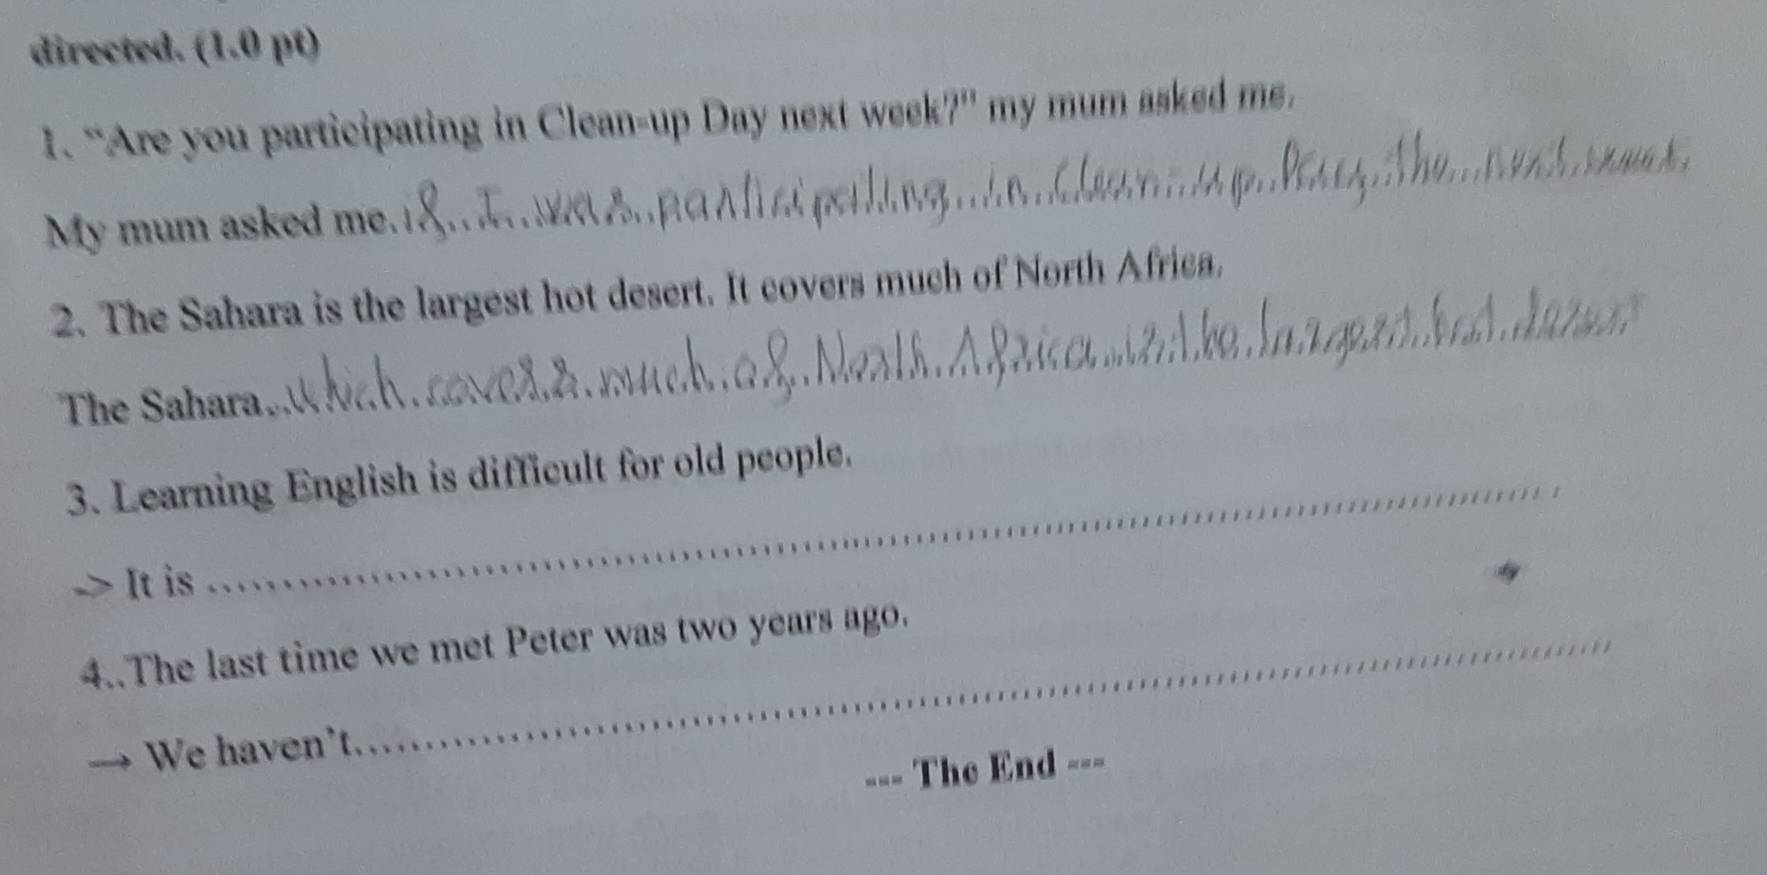 directed. (1.0 pt)
1. “Are you participating in Clean-up Day next week?" my mum asked me.
My mum asked me. if I was participating in Clean-up Day the next week.
2. The Sahara is the largest hot desert. It covers much of North Africa.
The Sahara, which covers much of North Africa is the largest hot desert
3. Learning English is difficult for old people.
-> It is ........................................................................
4..The last time we met Peter was two years ago.
→ We haven't........................................................................
--- The End ---